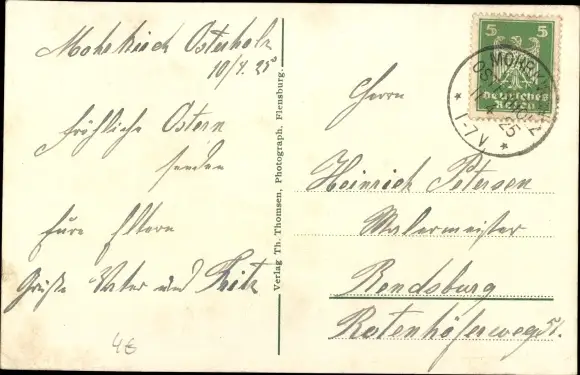 Mohrkirch Osterholz
10/4. 25
Fröhliche Ostern
senden
Eure Eltern
Grüße Vater und Fritz
4€
Verlag Th. Thomsen, Photograph, Flensburg.
5 5
Deutsches
Reich
MOHRK
OST HOLZ
25
1-7 V
Herrn
Heinrich Petersen
Malermeister
Rendsburg
Rotenhöferweg 51.